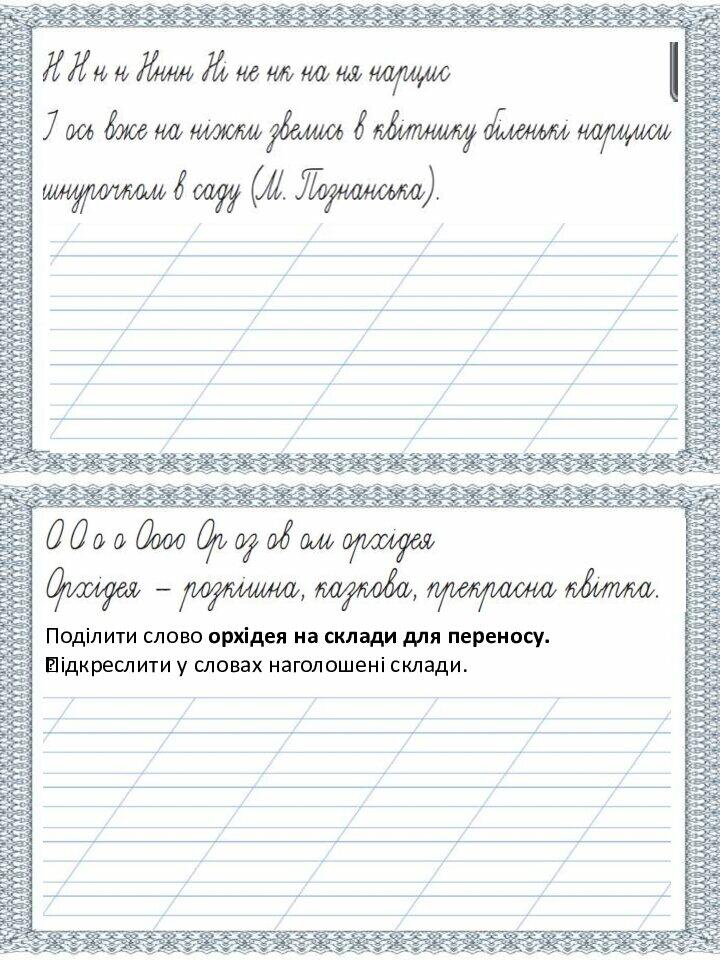 Н Н н н Нннн Ні не нк на ня нарцис
І ось вже на ніжки звелись в квітнику біленькі нарциси
шнурочком в саду (М. Познанська).
О О о о Оооо Ор оз ов ом орхідея
Орхідея – розкішна, казкова, прекрасна квітка.
Поділити слово орхідея на склади для переносу.
Підкреслити у словах наголошені склади.